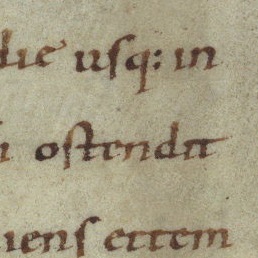 die usq: in
ostendit
iens ettem